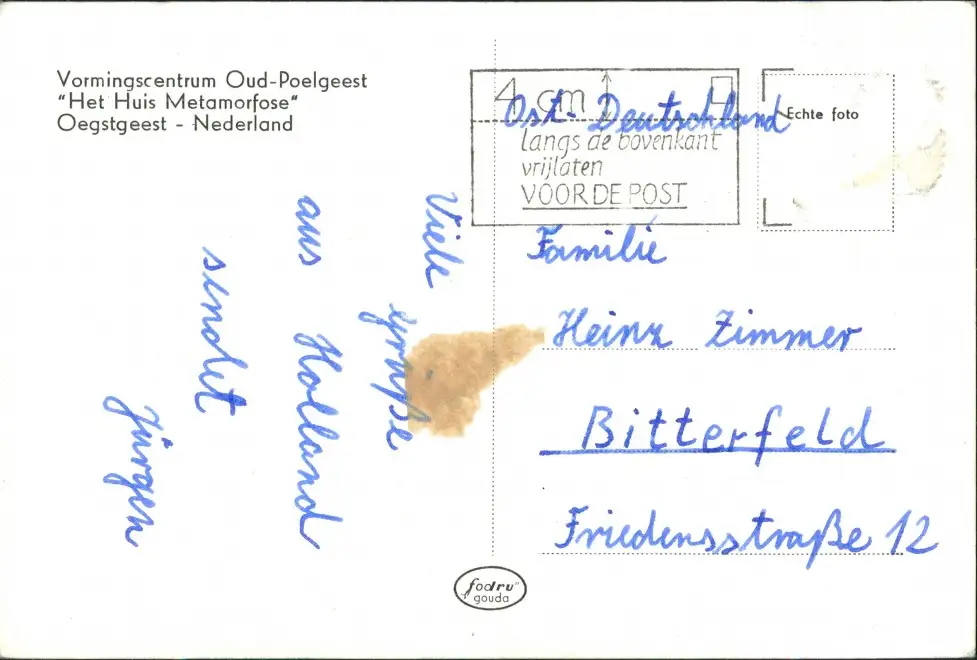 Vormingscentrum Oud-Poelgeest
"Het Huis Metamorfose"
Oegstgeest - Nederland
Viele
grüße
aus Holland
sendet
Jürgen
4 cm
langs de bovenkant
vrijlaten
VOOR DE POST
Echte foto
Ost-Deutschland
Familie
Heinz Zimmer
Bitterfeld
Friedensstraße 12
fodru"
gouda